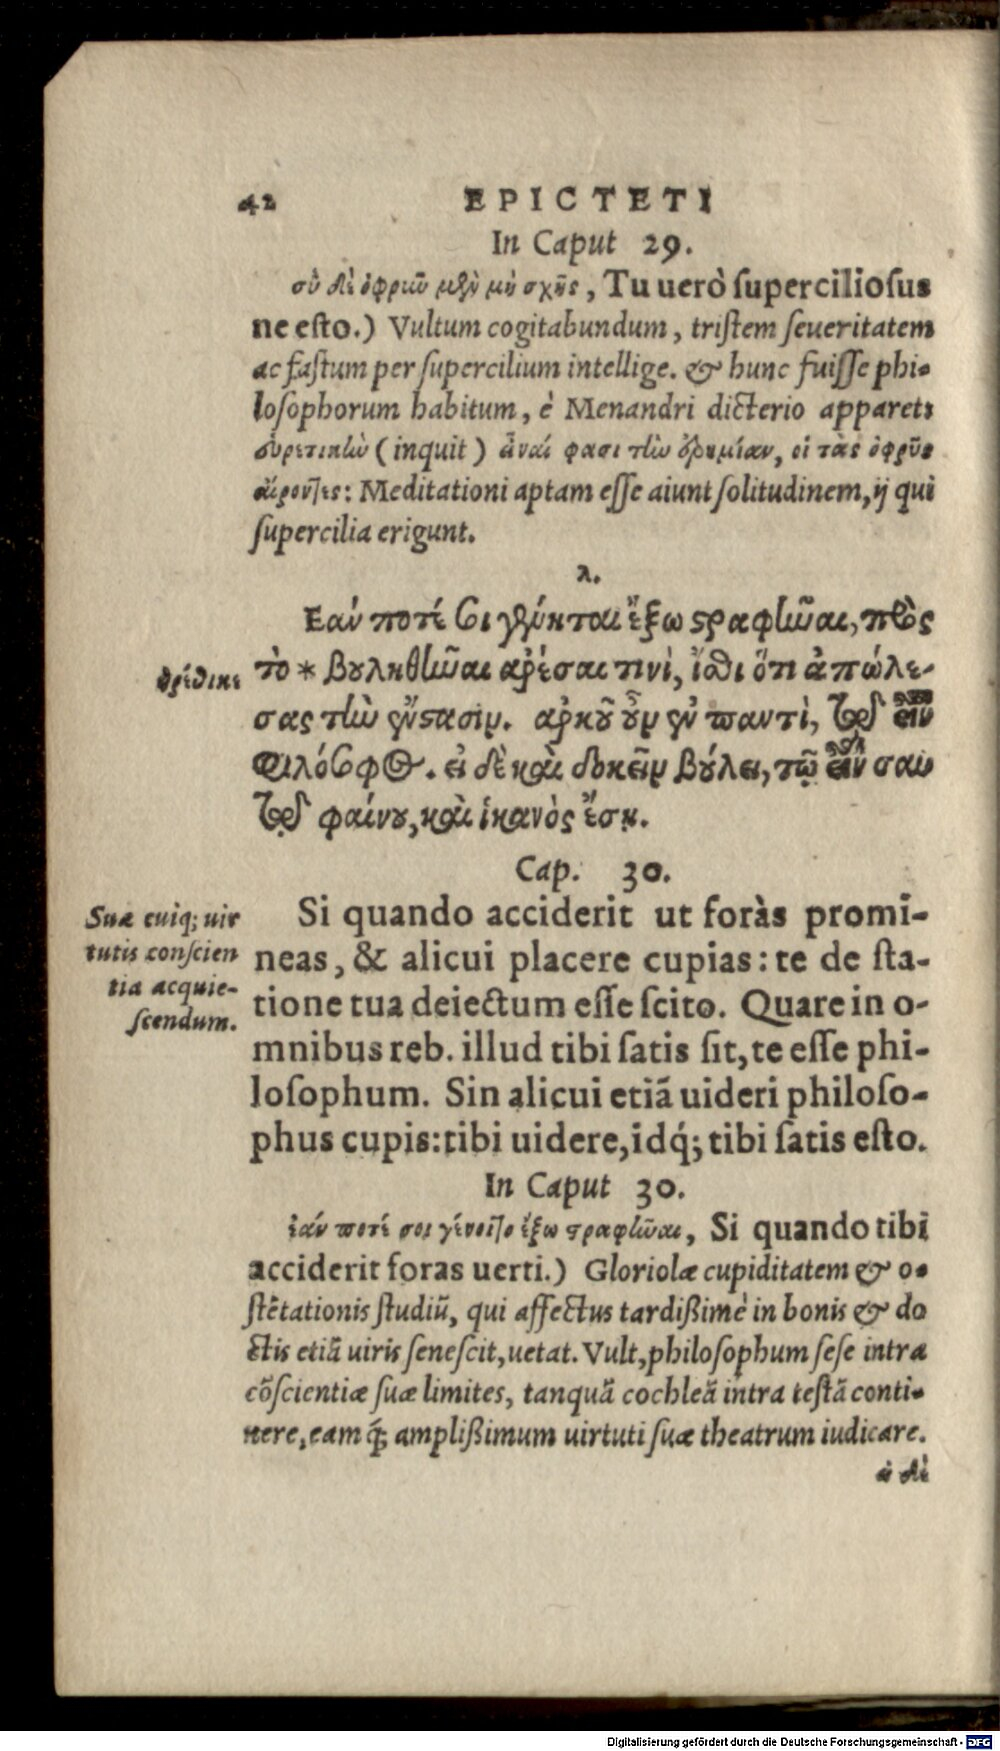 42 EPICTETI
In Caput 29.
σὺ δὲ ὀφρῦν μὲν μὴ σχῇς, Tu uerò ſuperciliоſus
ne eſto.) Vultum cogitabundum, triſtem ſeueritatem
ac faſtum per ſupercilium intellige. & hunc fuiſſe phi-
loſophorum habitum, è Menandri dicterio apparet:
εὑρετικὴν (inquit) εἶναί φασι τὴν ἐρημίαν, οἱ τὰς ὀφρῦς
αἴροντες: Meditationi aptam eſſe aiunt ſolitudinem, ij qui
ſupercilia erigunt.
λ.
Εάν ποτέ σοι γένηται ἔξω στραφῆναι, πρὸς
τὸ * βουληθῆναι ἀρέσαι τινὶ, ἴσθι ὅτι ἀπώλε-
σας τὴν ἔνστασιν. ἀρκοῦ οὖν ἐν παντὶ, τοῦ εἶναι
Φιλόσοφος. εἰ δὲ καὶ δοκεῖν βούλει, τῷ εἶναι σαυ
τῷ φαίνου, καὶ ἱκανὸς ἔσῃ.
Cap. 30.
Suæ cuiq; uir
tutis conſcien
tia acquie-
ſcendum.
Si quando acciderit ut foràs promi-
neas, & alicui placere cupias: te de ſta-
tione tua deiectum eſſe ſcito. Quare in o-
mnibus reb. illud tibi ſatis ſit, te eſſe phi-
loſophum. Sin alicui etiã uideri philoſo-
phus cupis: tibi uidere, idq́; tibi ſatis eſto.
In Caput 30.
ἐάν ποτέ σοι γένοιτο ἔξω στραφῆναι, Si quando tibi
acciderit foras uerti.) Gloriolæ cupiditatem & o-
ſtẽtationis ſtudiũ, qui affectus tardißimè in bonis & do
ctis etiã uiris ſeneſcit, uetat. Vult, philoſophum ſeſe intra
cõſcientiæ ſuæ limites, tanquã cochleã intra teſtã conti-
nere, eam q́; amplißimum uirtuti ſuæ theatrum iudicare.
εἰ δὲ
Digitalisierung gefördert durch die Deutsche Forschungsgemeinschaft - DFG